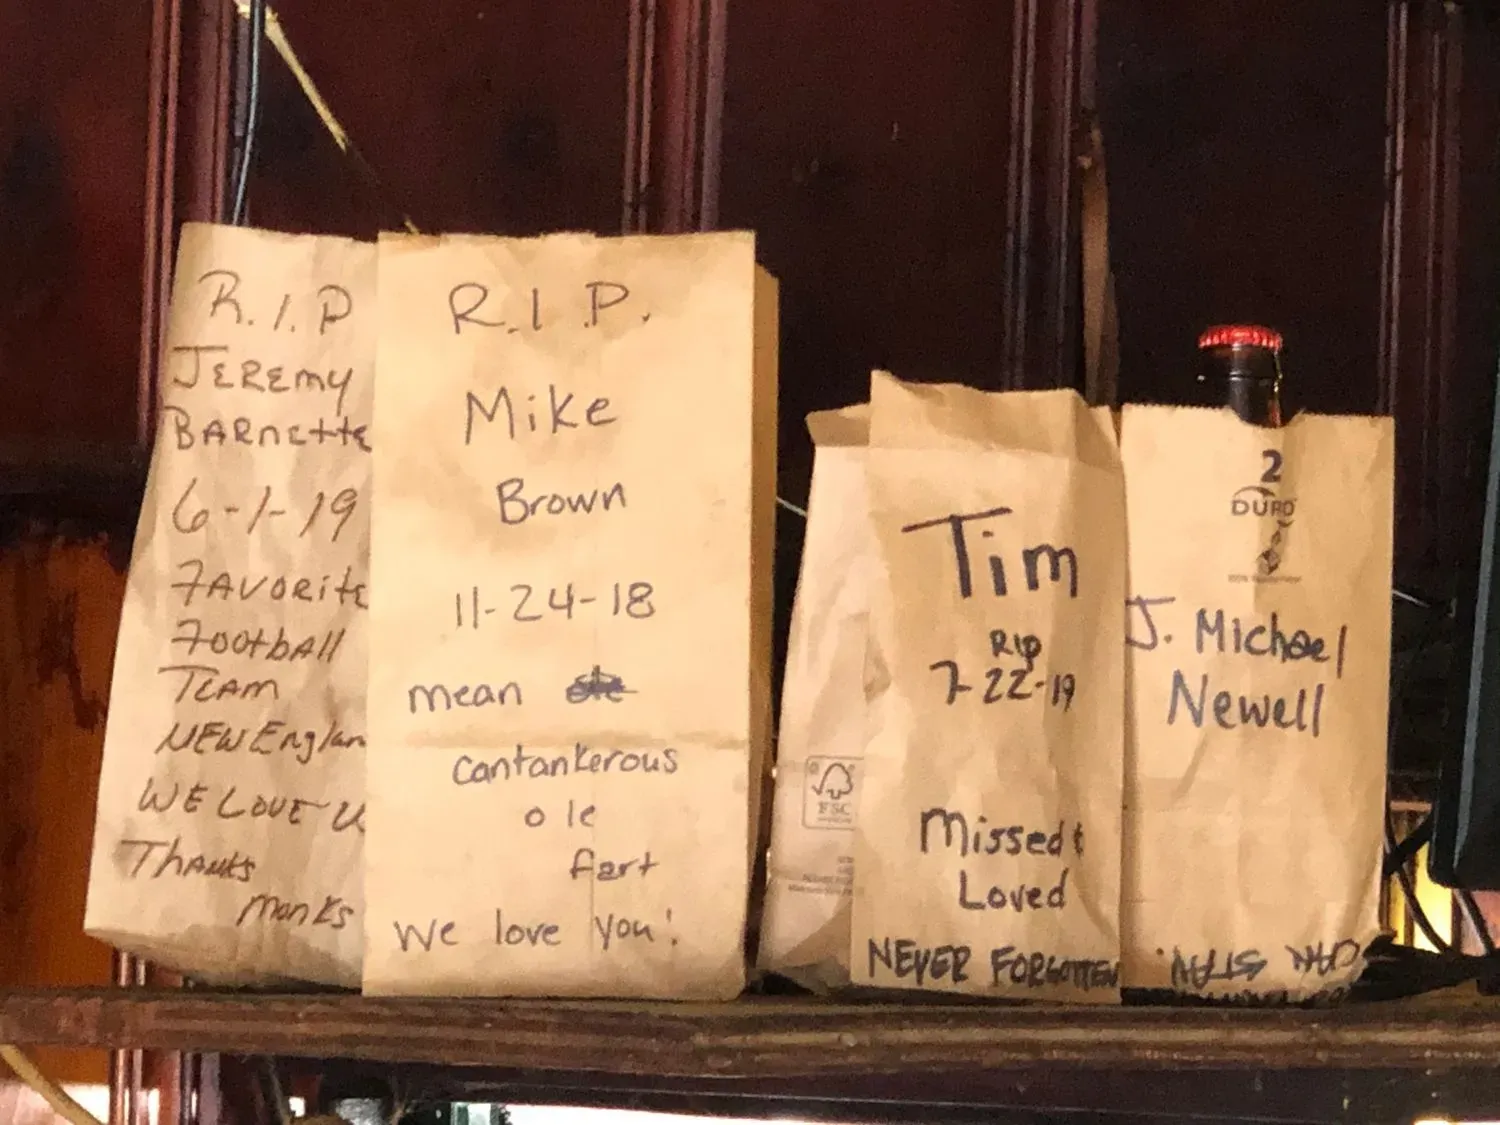 R.I.P
JEREMY
BARNette
6-1-19
FAVORite
FootbAll
TEAM
NEW Englan
WE LOVE U
THANKS
Monks
R.I.P.
Mike
Brown
11-24-18
mean
cantankerous
ole
fart
We love you!
FSC
Tim
RIP
7-22-19
Missed &
Loved
NEVER FORGOTTEN
2
DURO
J. Michael
Newell